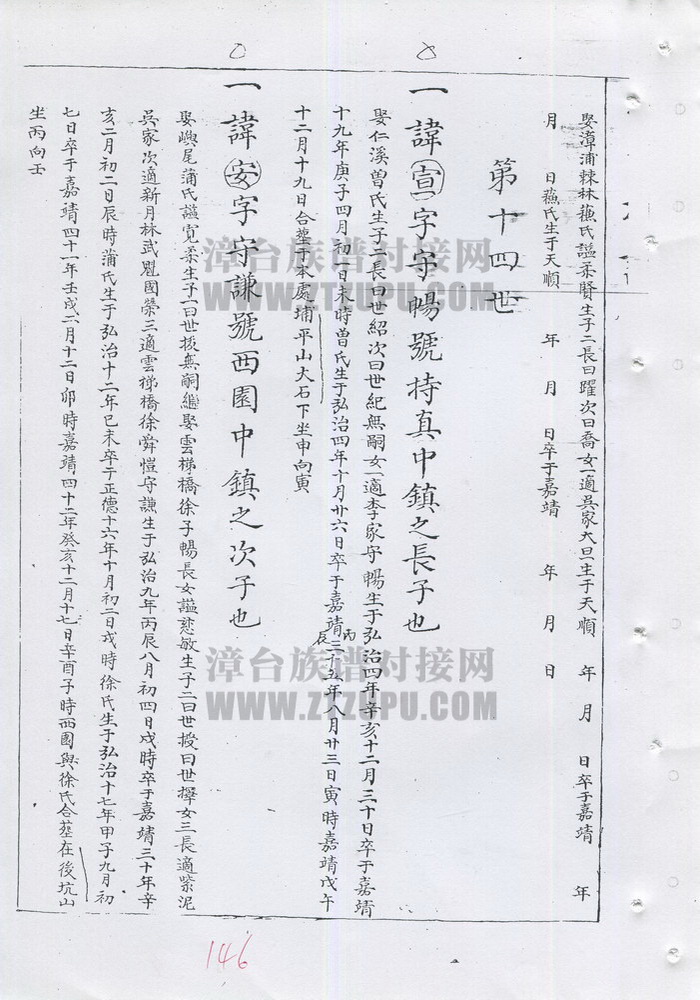 娶漳浦棘林蘓氏謚柔賢生子二長曰躍次曰喬女一適吳家大旦生于天順 年 月 日卒于嘉靖 年
月 日蘓氏生于天順 年 月 日卒于嘉靖 年 月 日
第十四世
一諱宣字守暢號持真中鎮之長子也
娶仁溪曾氏生子二長曰世紹次曰世紀無嗣女一適李家守暢生于弘治四年辛亥十二月三十日卒于嘉靖
十九年庚子四月初一日未時曾氏生于弘治四年十月廿六日卒于嘉靖三十五年丙辰八月廿三日寅時嘉靖戊午
十二月十九日合塟于本處埔平山大石下坐申向寅
一諱安字守謙號西園中鎮之次子也
娶嶼尾蒲氏謚寬柔生子一曰世拔無嗣繼娶雲梯橋徐子暢長女謚慈敏生子二曰世授曰世擇女三長適紫泥
吳家次適新月林武魁國榮三適雲梯橋徐舜愷守謙生于弘治九年丙辰八月初四日戍時卒于嘉靖三十年辛
亥二月初二日辰時蒲氏生于弘治十二年己未卒于正德十六年十月初二日戍時徐氏生于弘治十七年甲子九月初
七日卒于嘉靖四十一年壬戍二月十二日卯時嘉靖四十二年癸亥十二月十七日辛酉子時西園與徐氏合塟在後坑山
坐丙向壬
146
漳台族谱对接网
WWW.ZTZUPU.COM
漳台族谱对接网
WWW.ZTZUPU.COM